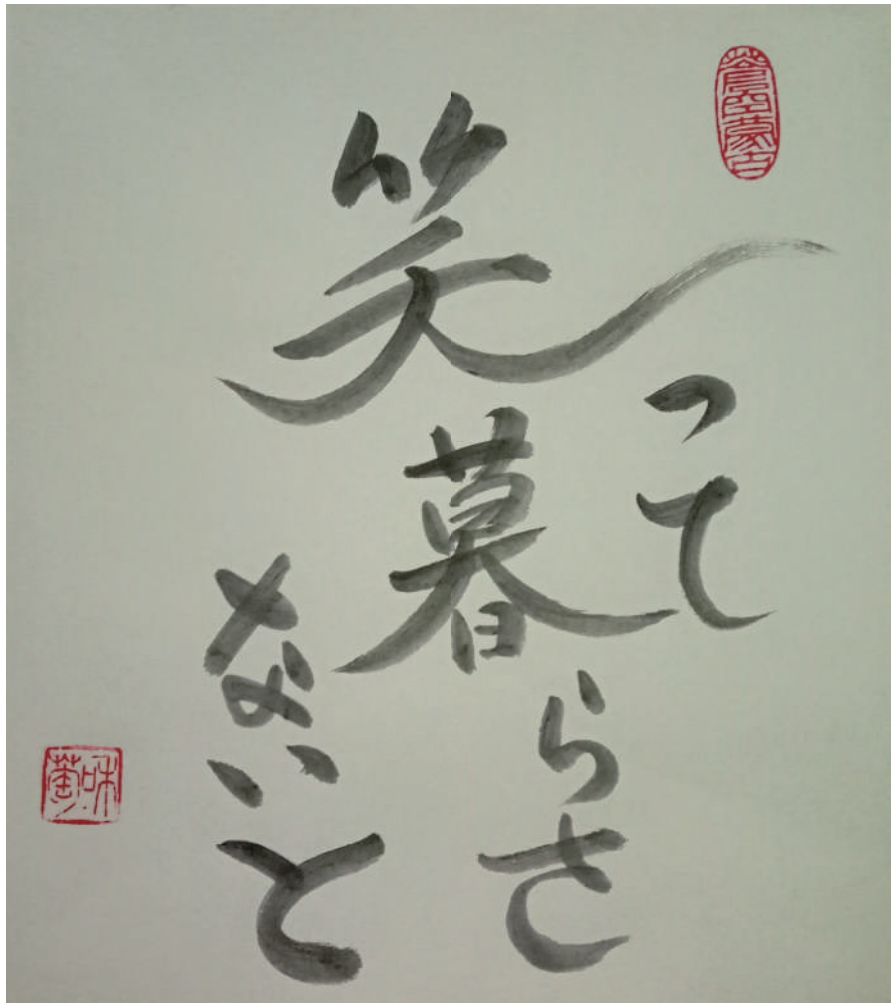 笑って
暮らさ
ないと